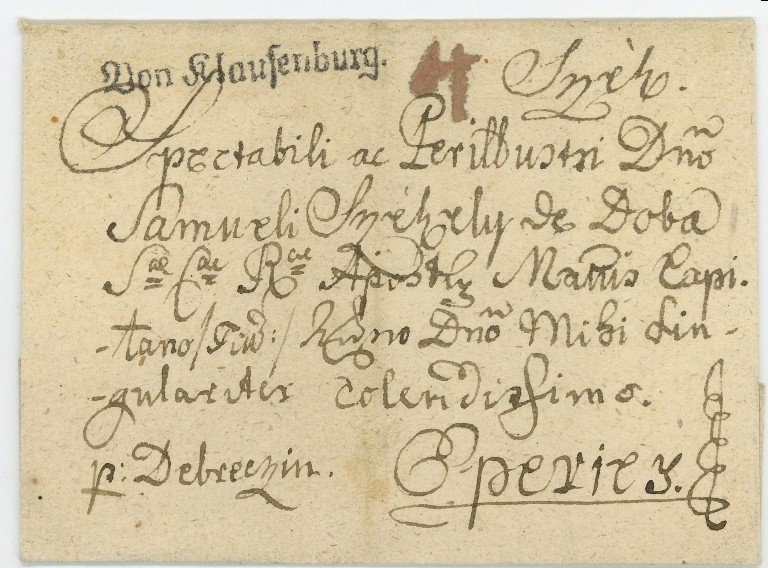 Von Klausenburg.
Széh.
Spectabili ac Perillustri Dnō
Samueli Székely de Doba
Sae Cae Rae Apostlz Mattis Capi-
-tano /Titl:/ Dno Dnō Mihi sin-
-gulariter colendissimo.
p: Debreczin. Eperies.